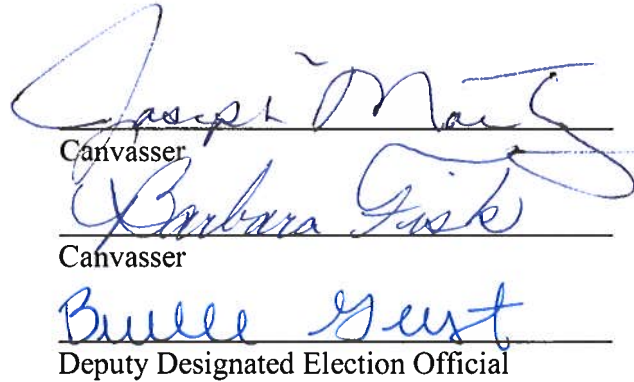 Joseph
Canvasser
Barbara Fisk
Canvasser
Deputy Designated Election Official